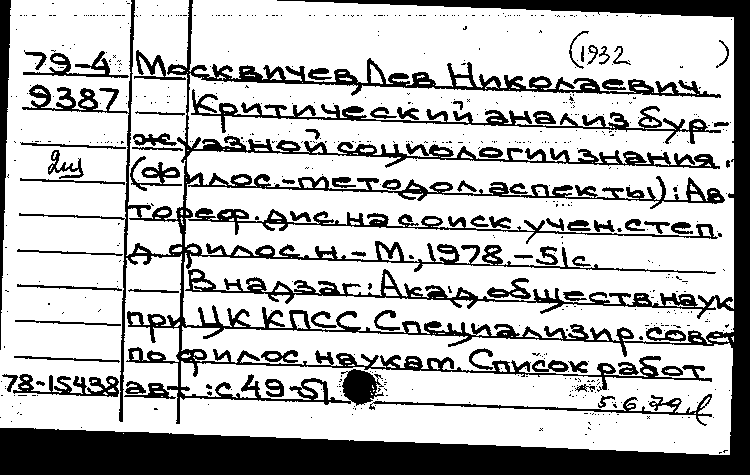 (1932 )
79-4 Москвичев, Лев Николаевич.
9387 Критический анализ бур-
жуазной социологии знания.
2ш (филос.-методол. аспекты): Ав-
тореф. дис. на соиск. учен. степ.
д. филос. н. - М., 1978. - 51 с.
В надзаг.: Акад. обществ. наук
при ЦК КПСС. Специализир. совет
по филос. наукам. Список работ
78-15438 авт.: с. 49-51.
5.6.79.